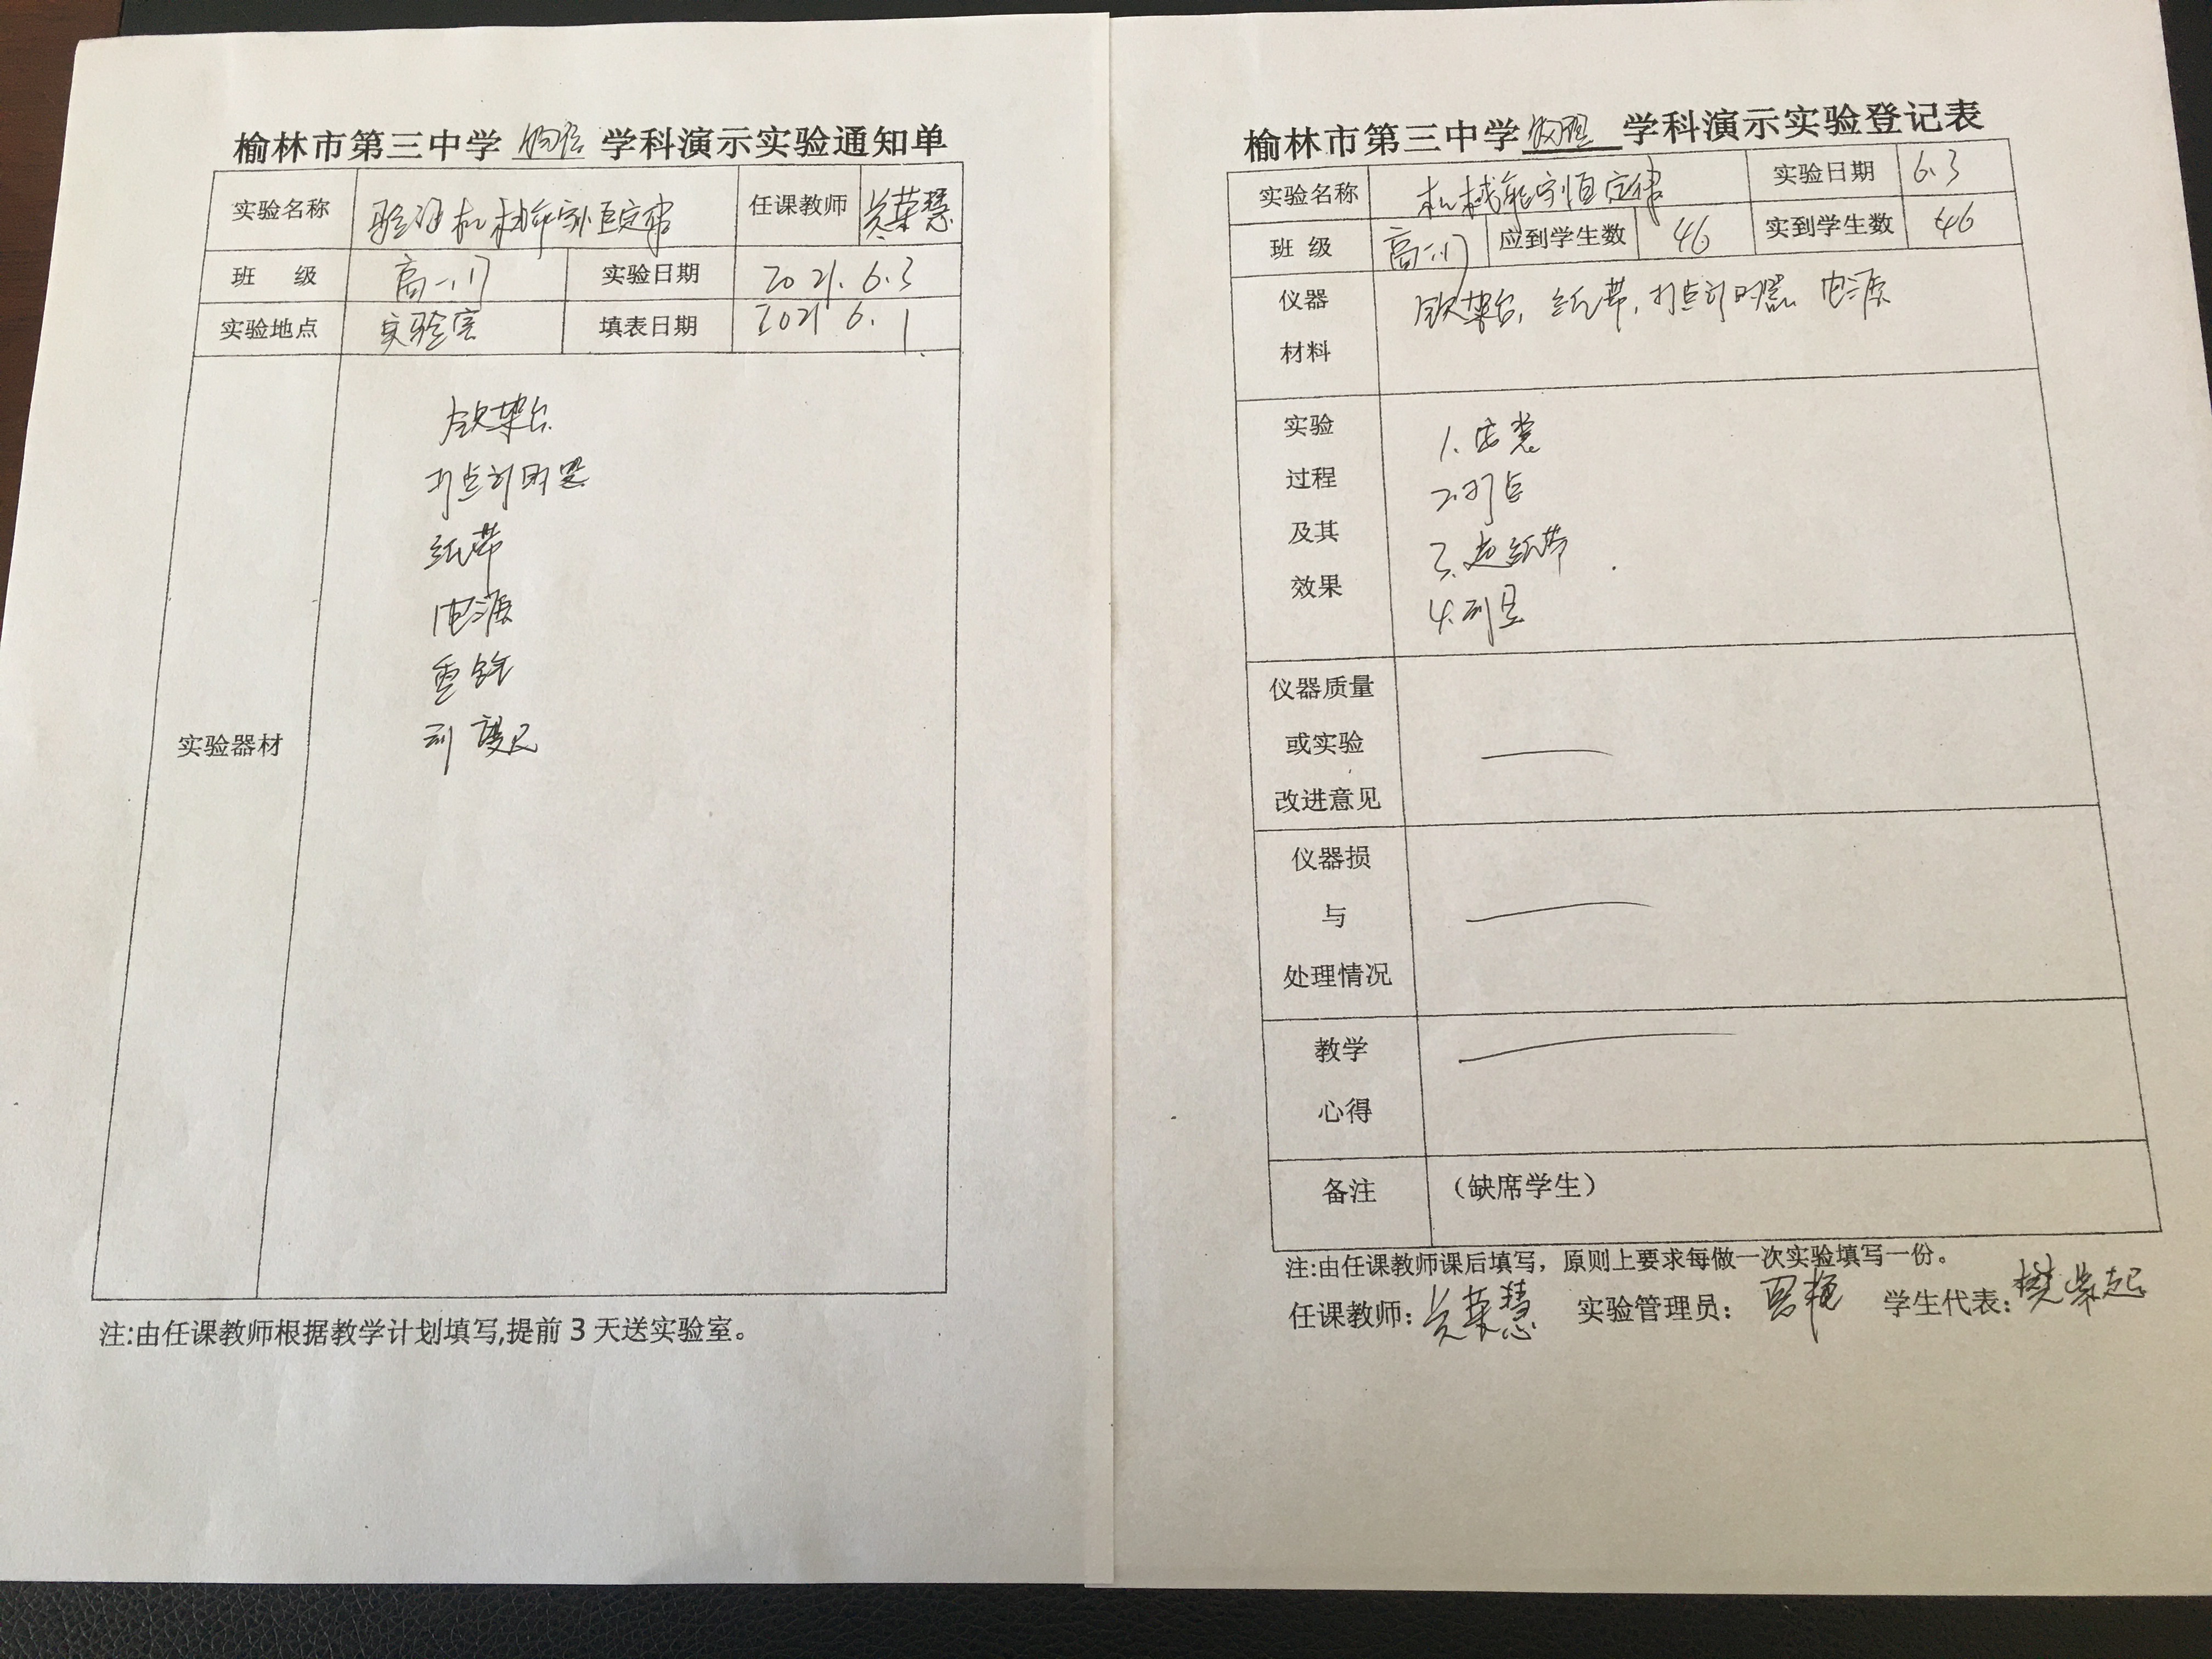 榆林市第三中学 物理 学科演示实验通知单
实验名称 验证机械能守恒定律 任课教师 荣慧
班 级 高一(1) 实验日期 2021.6.3
实验地点 实验室 填表日期 2021 6.1
实验器材
铁架台
打点计时器
纸带
电源
重锤
刻度尺
注:由任课教师根据教学计划填写,提前3天送实验室。
榆林市第三中学 物理 学科演示实验登记表
实验名称 机械能守恒定律 实验日期 6.3
班 级 高一(1) 应到学生数 46 实到学生数 46
仪器
材料
铁架台,纸带,打点计时器 电源
实验
过程
及其
效果
1.安装
2.打点
3.选纸带
4.测量
仪器质量
或实验
改进意见
仪器损
与
处理情况
教学
心得
备注 (缺席学生)
注:由任课教师课后填写,原则上要求每做一次实验填写一份。
任课教师: 荣慧 实验管理员: 学生代表: